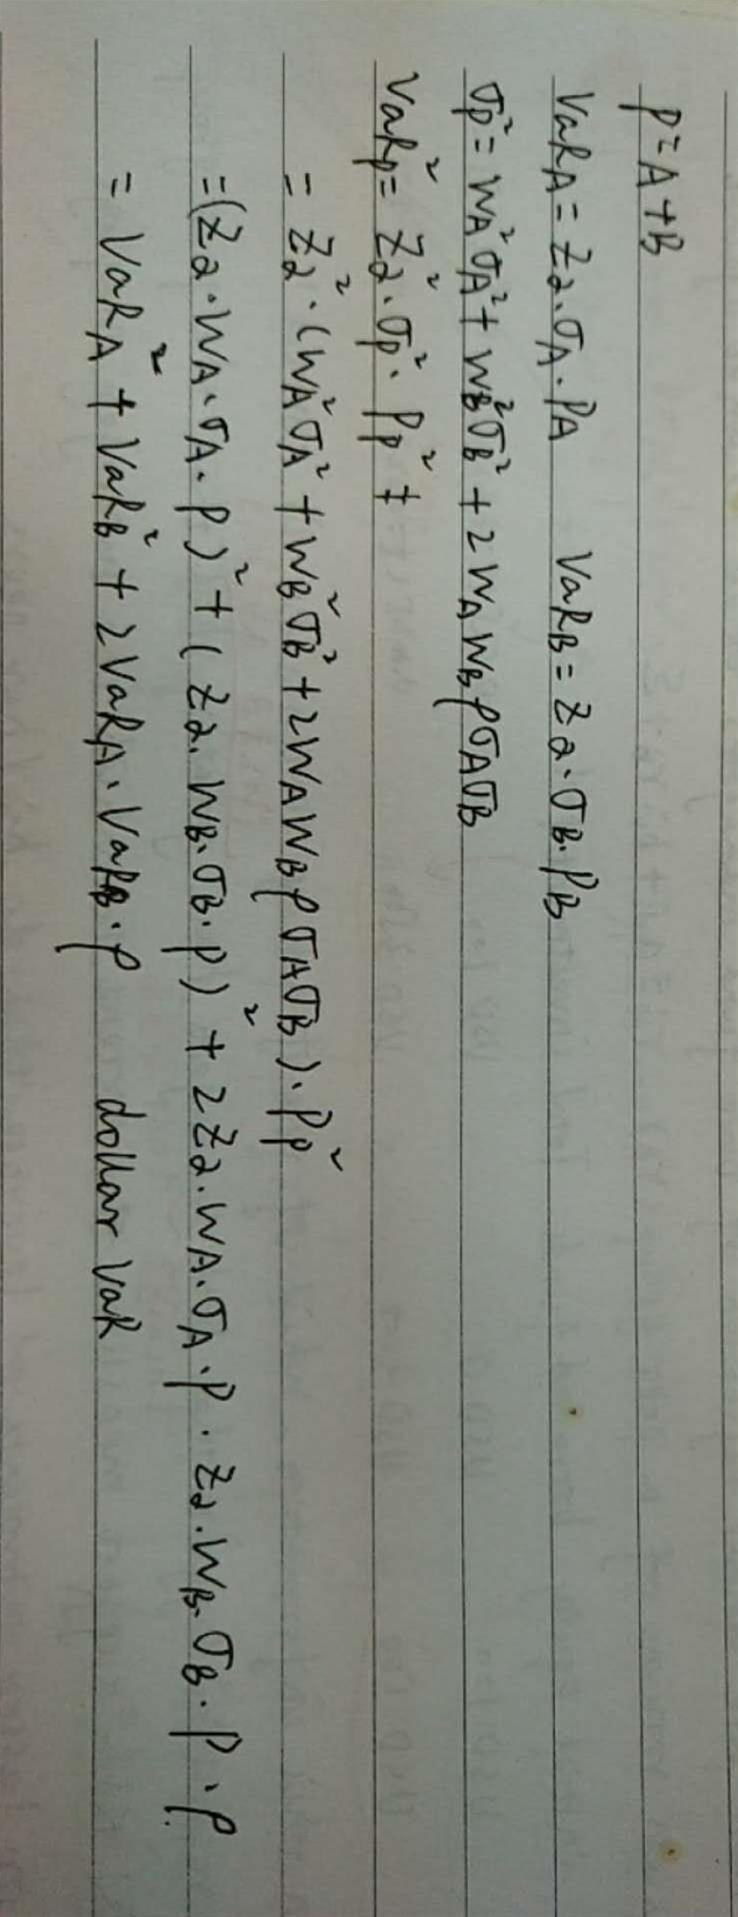 P=A+B
VaR_A = Z_α·σ_A·P_A VaR_B = Z_α·σ_B·P_B
σ_P² = W_A²σ_A² + W_B²σ_B² + 2W_A W_B ρσ_Aσ_B
VaR_P² = Z_α²·σ_P²·P_P² +
= Z_α²·(W_A²σ_A² + W_B²σ_B² + 2W_A W_B ρσ_Aσ_B)·P_P²
=(Z_α·W_A·σ_A·P)² + (Z_α·W_B·σ_B·P)² + 2Z_α·W_A·σ_A·P·Z_α·W_B·σ_B·P·ρ
= VaR_A² + VaR_B² + 2VaR_A·VaR_B·ρ dollar VaR